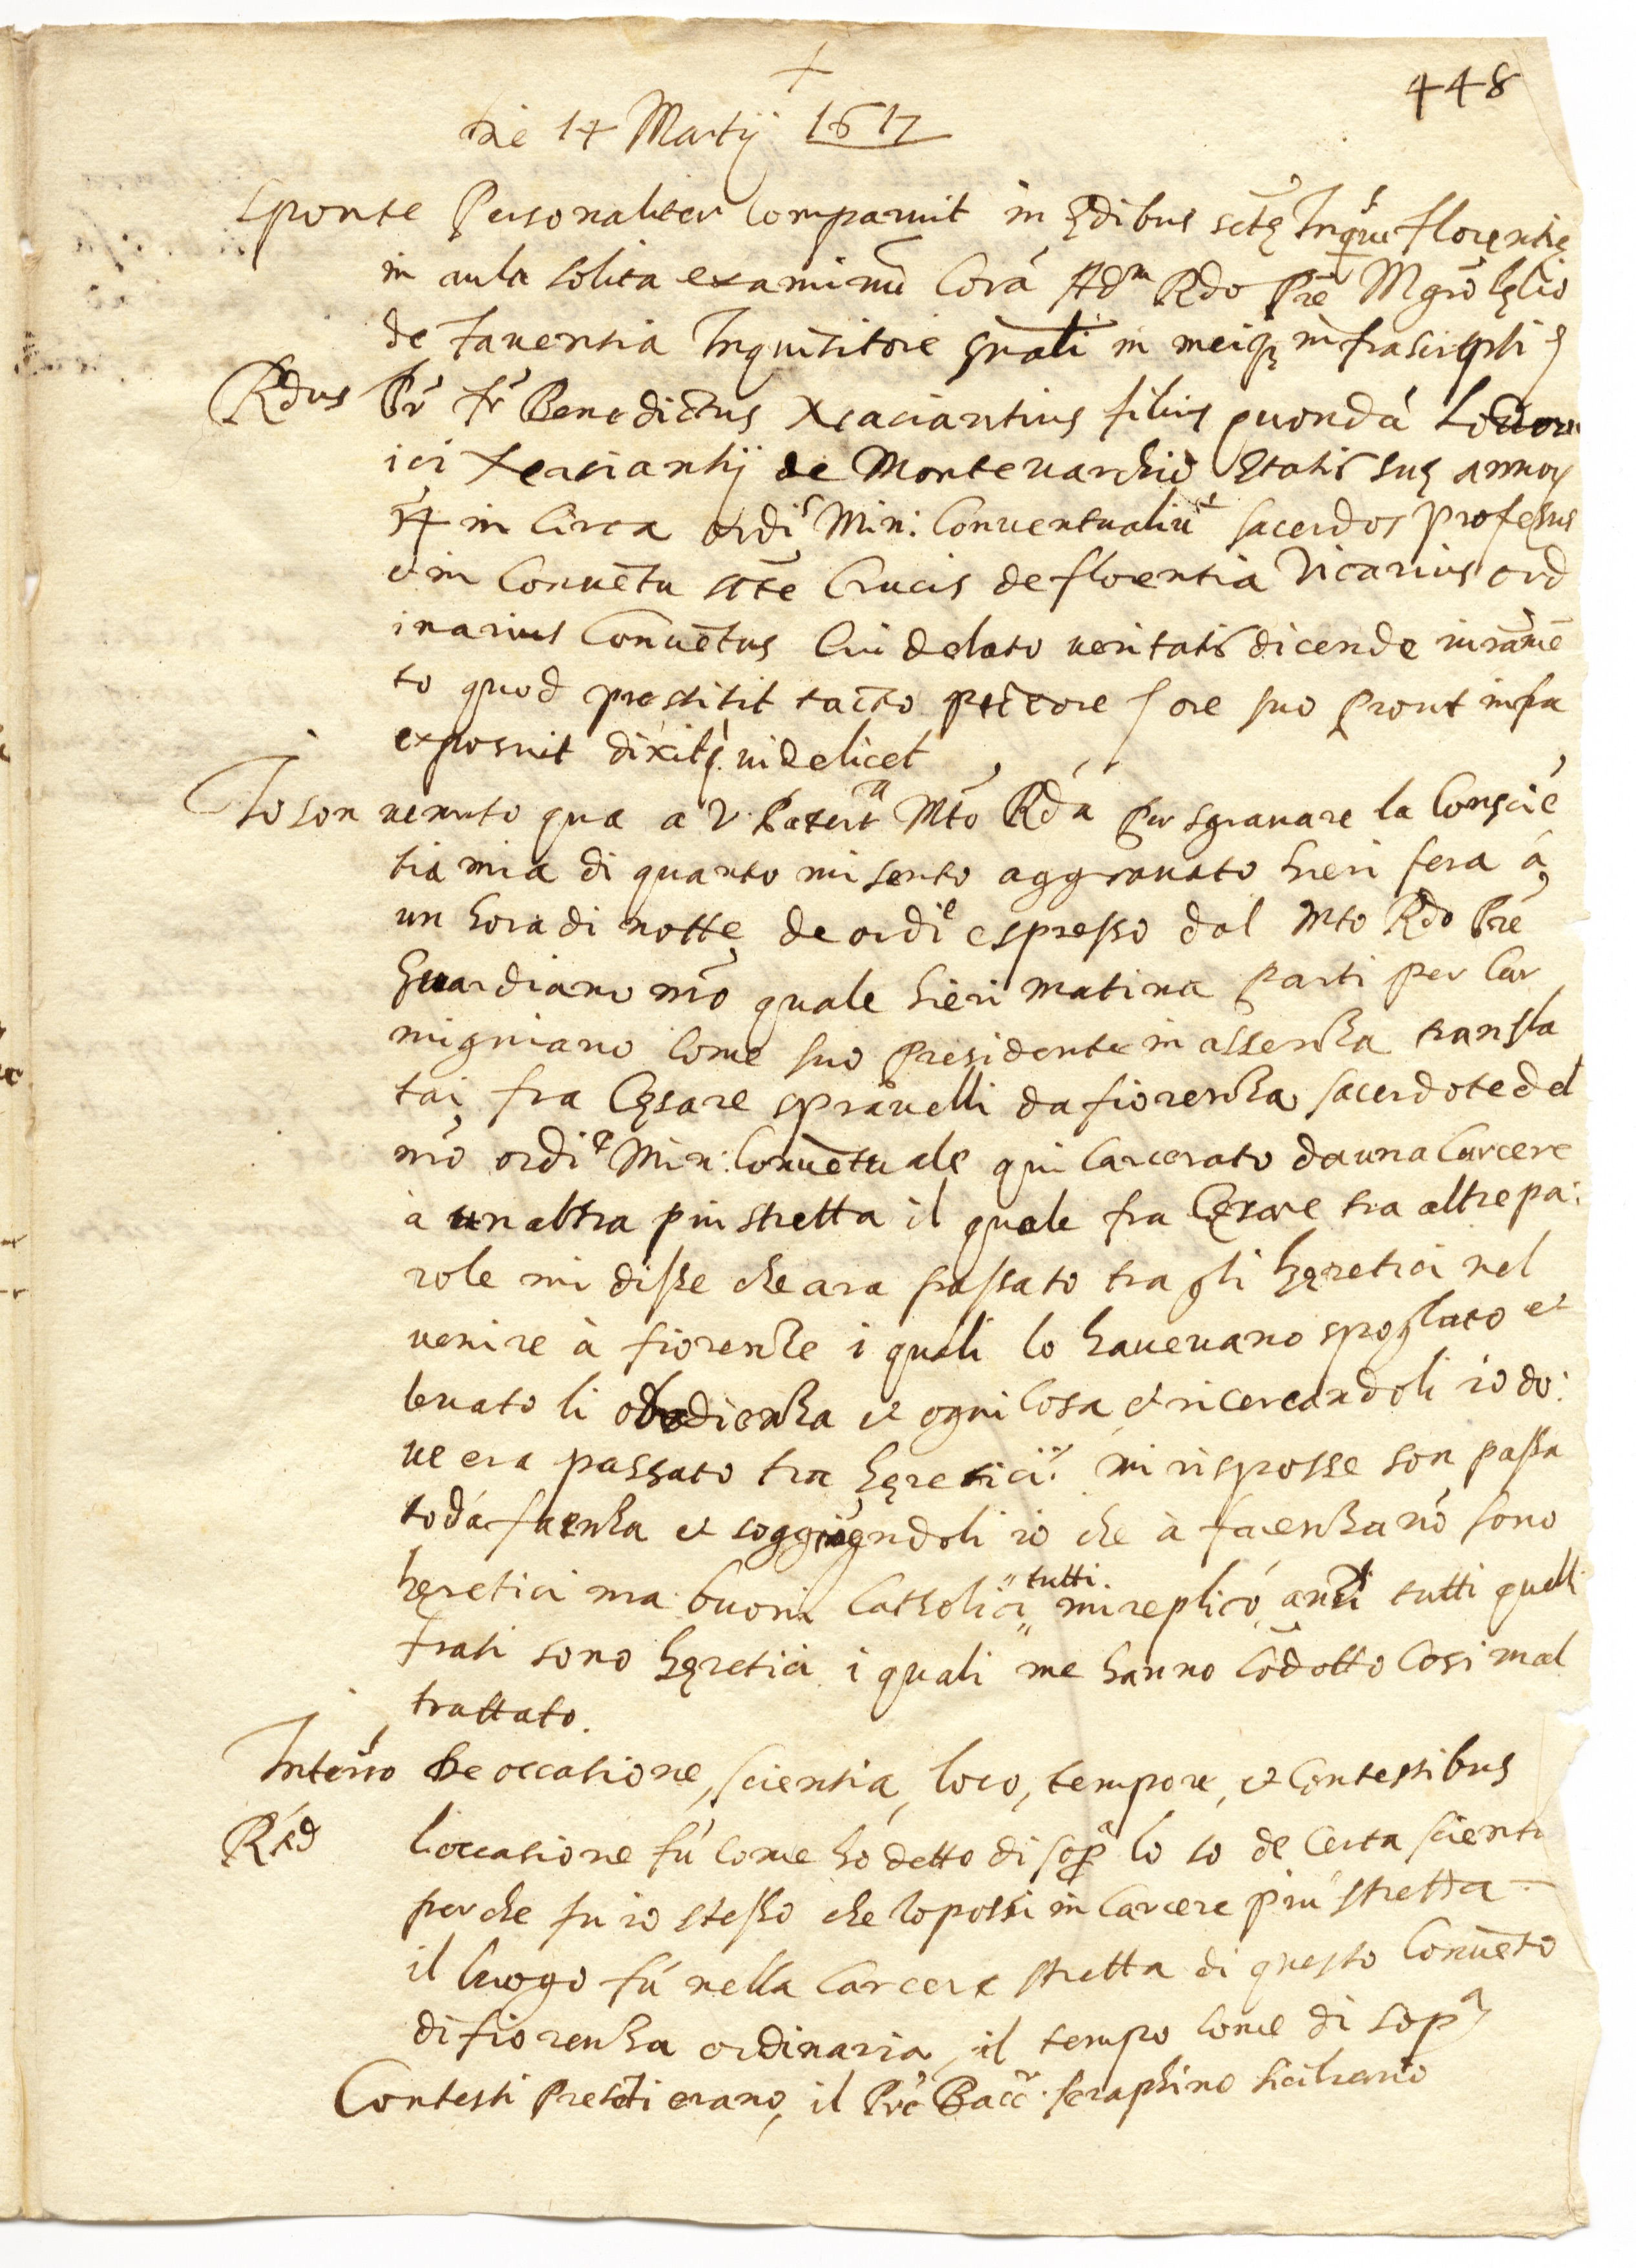 +
448
Die 14 Martij 1617
Sponte Personaliter Comparuit in ędibus sctę Inqnis florentię
in aula solita examinũ Corã Adm Rdo Pre Mgrõ lęlio
de faventia Inquisitore gñali in meiq; infrascripti
Rdus Pr fr Benedictus filius quondã Lodov
ici de Montevarchio Etatis suę annoꝝ
54 in Circa ordis Min: Conventualiũ sacerdos professus
et in Convẽtu sctẽ Crucis de florentia Vicarius ord
inarius Convẽtus Cui delato veritatis dicende iuramẽ
to quod prestitit tacto pectore ore suo prout infra
exposuit dixitq; videlicet
Io son venuto qua a V. Paterta Mto Rda per sgravare la Conscię
tia mia di quanto mi sento aggravato hieri sera à
un hora di notte de ordie espresso dal Mto Rdo Pre
Guardiano nrõ quale hieri matina parti per Car
migniano come suo presidente in assenza transla
tai fra Cęsare spravelli da fiorenza sacerdote del
nrõ ordie Min: Convẽtuale qui Carcerato da una Carcere
à un altra piu stretta il quale fra Cęsare tra altre pa:
role mi disse che ara passato tra gli hęretici nel
venire à fiorenze i quali lo havevano spogliato et
levato li obedienza et ogni Cosa, et ricercandoli io do:
ve era passato tra hęretici: mi risposse son passa
to dá faenza et soggiũgendoli io che à faenza nõ sono
heretici ma buoni Catholici tutti. mi replicó anzi tutti quelli
frati sono hęretici i quali me hanno Cõdotto Cosi mal
trattato.
Interro De occasione, scientia, loco, tempore, et Contestibus
Rñd l'occasione fú Come hó detto di sopa lo so de Certa scient
perche fu io stesso che lo possi in Carcere piú stretta
il luogo fú nella Carcere stretta di questo Convẽto
di fiorenza ordinaria, il tempo Come di sopa
Contesti Presẽti erano, il Pre Bacc. Seraphino siciliano